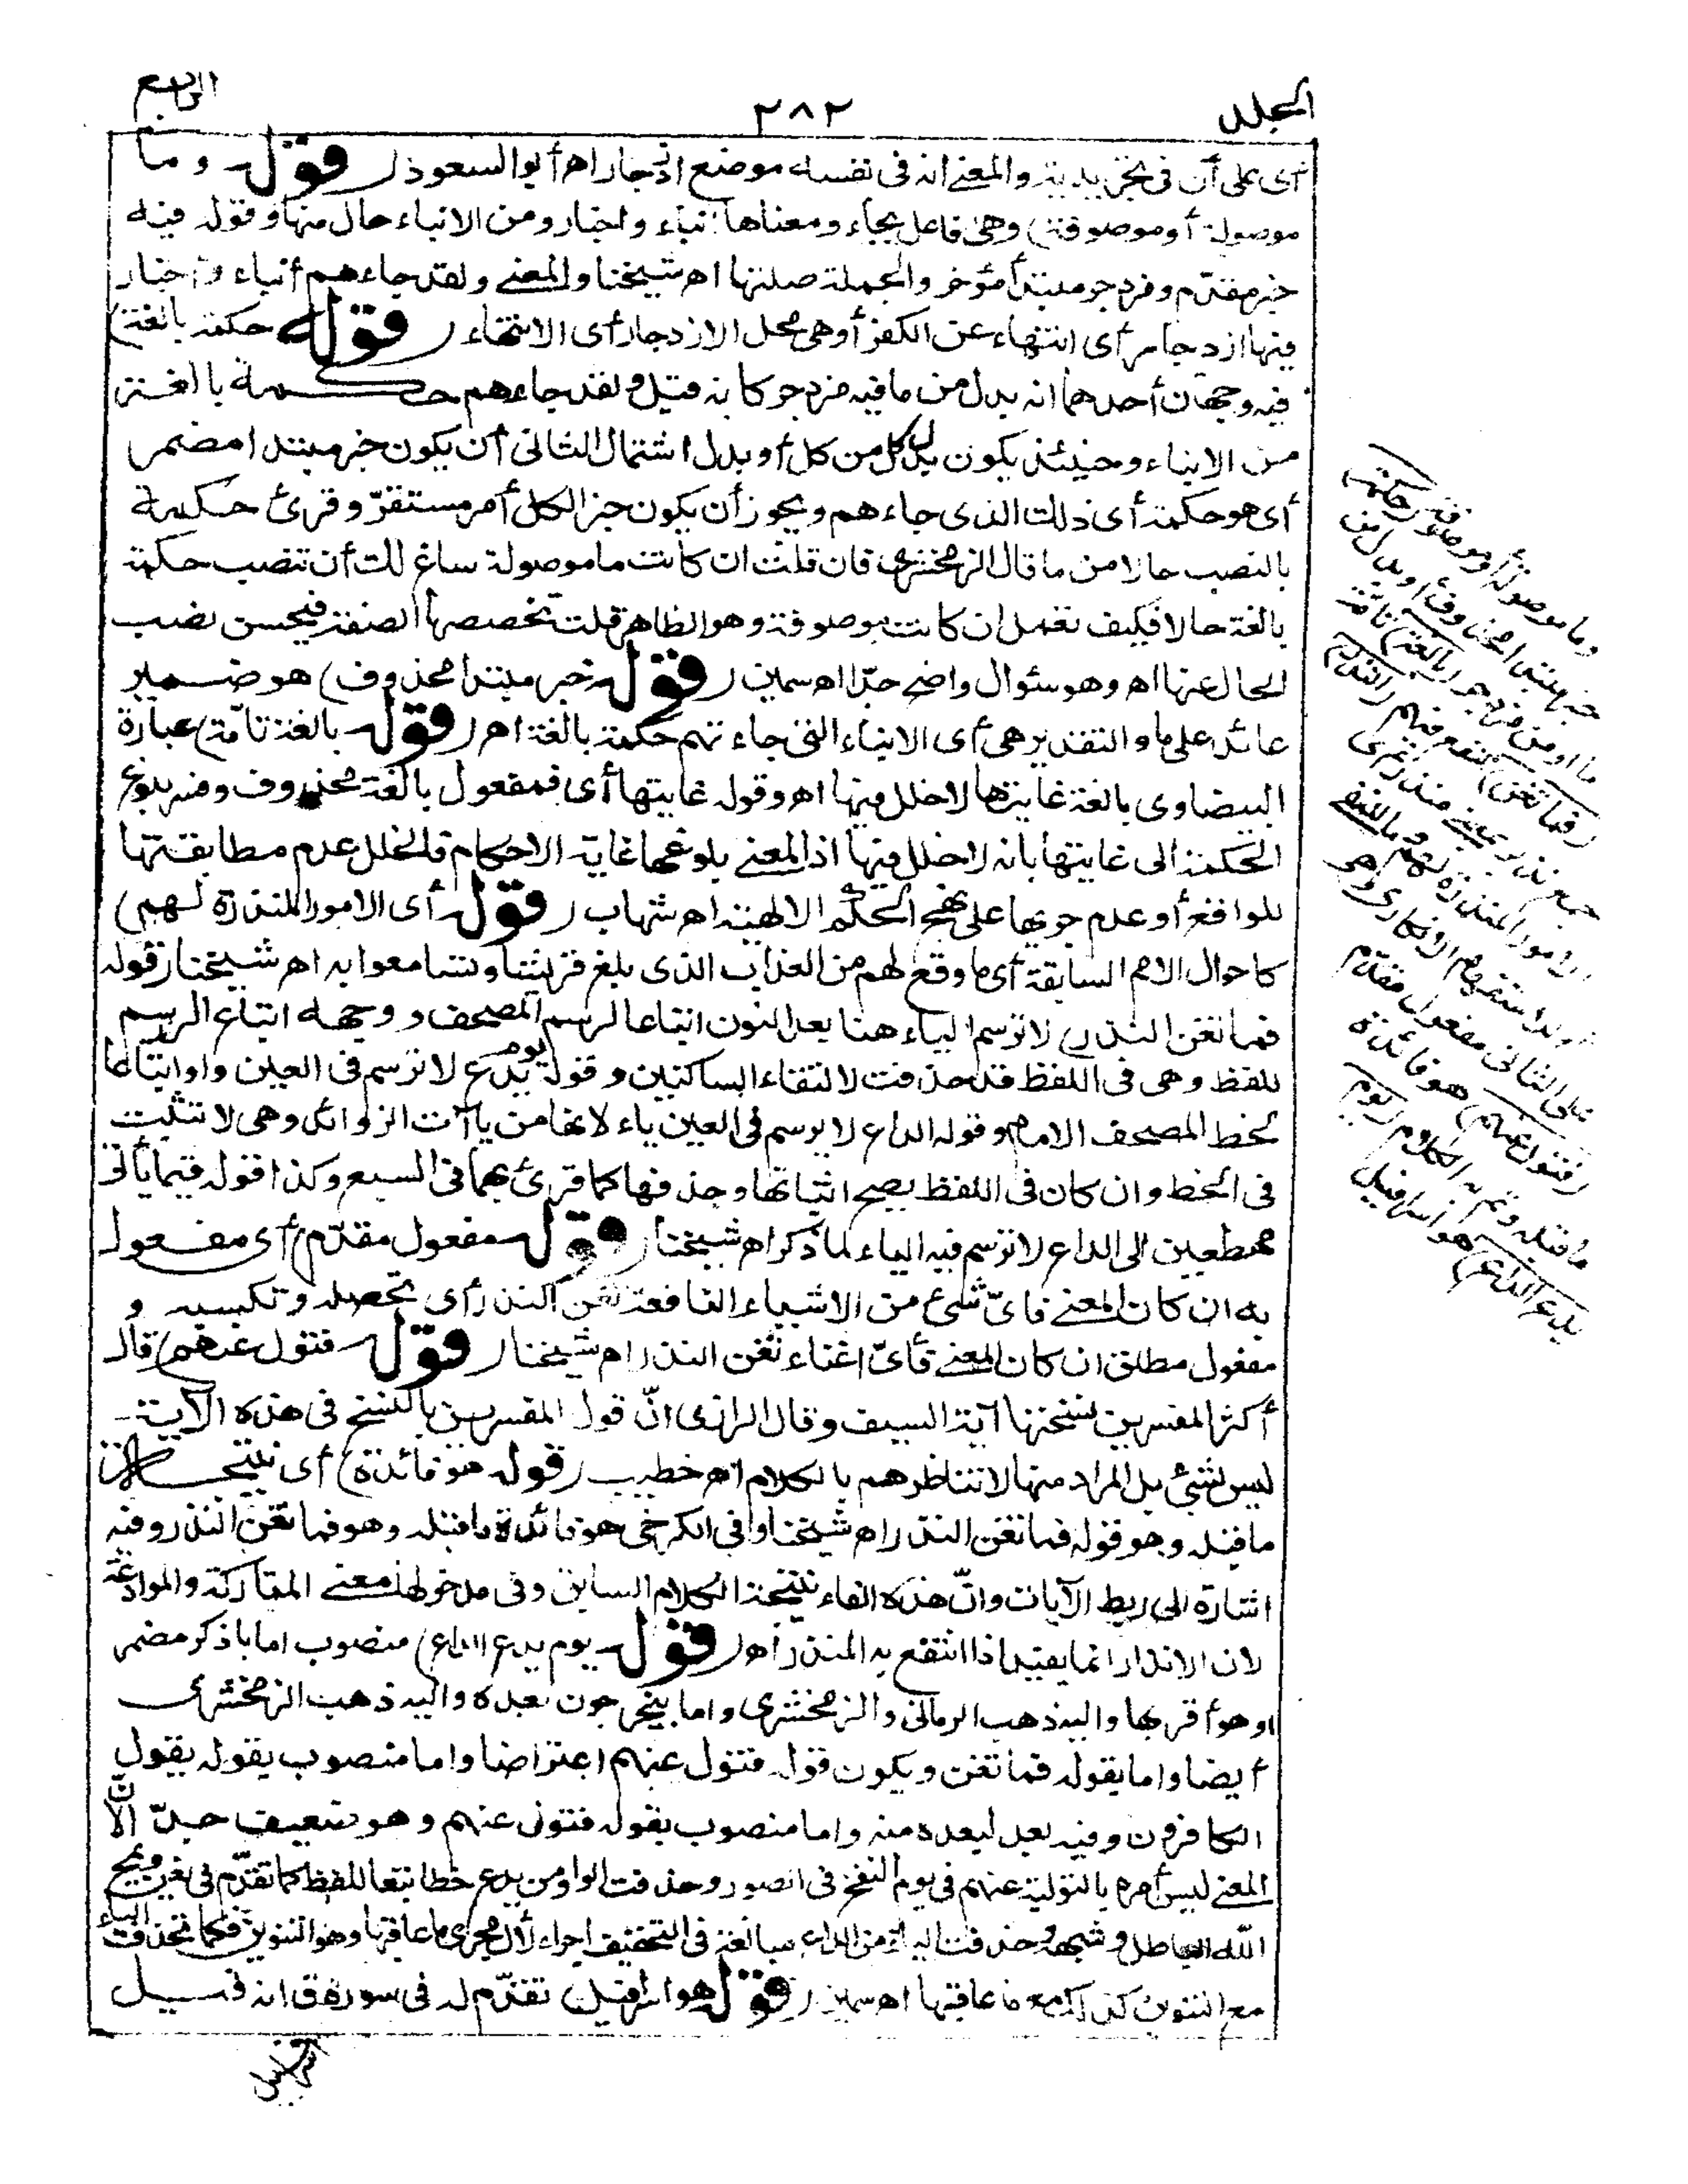 المجلد
٢٨٢
الرابع
أى على أن فى تجريدية والمعنى انه فى نفسه موضع ازدجار اهـ أبو السعود (قوله وما
موصولة أو موصوفة) وهى فاعل بجاء ومعناها أنباء واخبار ومن الانباء حال منها وقوله فيه
خبر مقدّم ومزدجر مبتدأ مؤخر والجملة صلتها اهـ شيخنا والمعنى ولقد جاءهم أنباء واخبار
فيها ازدجار أى انتهاء عن الكفر أو هى محل الازدجار أى الانتهاء (قوله حكمة بالغة)
فيه وجهان أحدهما انه بدل من ما فيه مزدجر كانه قيل ولقد جاءهم حكمة بالغة
من الانباء وحينئذ يكون بدل كل من كل أو بدل اشتمال الثانى أن يكون خبر مبتدا مضمر
أى هو حكمة أى ذلك الذى جاءهم ويجوز أن يكون خبر الكل أمر مستقرّ وقرئ حكمة
بالنصب حالا من ما قال الزمخشرى فان قلت ان كانت ما موصولة ساغ لك أن تنصب حكمة
بالغة حالا فكيف تعمل ان كانت موصوفة وهو الظاهر قلت تخصصها الصفة فيحسن نصب
الحال عنها اهـ وهو سئوال واضح جدّا اهـ سمين (قوله خبر مبتدا محذوف) هو ضمير
عائد على ما والتقدير هى أى الانباء التى جاءتهم حكمة بالغة اهـ (قوله بالغة تامّة) عبارة
البيضاوى بالغة غايتها لا خلل فيها اهـ وقوله غايتها أى فمفعول بالغة محذوف وفسر بلوغ
الحكمة الى غايتها بانه لا خلل فيها اذ المعنى بلوغها غاية الاحكام فالخلل عدم مطابقتها
للواقع أو عدم جريها على نهج الحكم الالهية اهـ شهاب (قوله أى الامور المنذرة لهم)
كاحوال الامم السابقة أى ما وقع لهم من العذاب الذى بلغ قريشا وتسامعوا به اهـ شيخنا (قوله
فما تغن النذر) لا ترسم الياء هنا بعد النون اتباعا لرسم المصحف ووجهه اتباع الرسم
للفظ وهى فى اللفظ قد حذفت لالتقاء الساكنين وقوله يوم يدع لا ترسم فى العين واو اتباعا
لخط المصحف الامام وقوله الداع لا يرسم فى العين ياء لانها من ياآت الزوائد وهى لا تثبت
فى الخط وان كان فى اللفظ يصح اثباتها وحذفها كما قرئ بهما فى السبع وكذا قوله فيما يأتى
مهطعين الى الداع لا ترسم فيه الياء لما ذكر اهـ شيخنا (قوله مفعول مقدّم) أى مفعول
به ان كان المعنى فاىّ شئ من الاشياء النافعة تغن النذر أى تحصله وتكسبه و
مفعول مطلق ان كان المعنى فأىّ اغناء تغن النذر اهـ شيخنا (قوله فتول عنهم) قال
أكثر المفسرين نسختها آية السيف وقال الرازى انّ قول المفسرين بالنسخ فى هذه الآية
ليس بشئ بل المراد منها لا تناظرهم بالكلام اهـ خطيب (قوله هو فائدة) أى نتيجة
ما قبله وهو قوله فما تغن النذر اهـ شيخنا وفى الكرخى هو فائدة ما قبله وهو فما تغن النذر وفيه
اشارة الى ربط الآيات وانّ هذه الفاء نتيجة الكلام السابق وفى مدخولها معنى المتاركة والموادعة
لان الانذار انما يفيد اذا انتفع به المنذر اهـ (قوله يوم يدع الداع) منصوب اما باذكر مضمر
او هو أقربها واليه ذهب الرمانى والزمخشرى واما بيخرجون بعده واليه ذهب الزمخشرى
أيضا واما بقوله فما تغن ويكون قوله فتول عنهم اعتراضا واما منصوب بقوله يقول
الكافرون وفيه بعد لبعده منه واما منصوب بقوله فتول عنهم وهو ضعيف جدّا لانّ
المعنى ليس أمره بالتولية عنهم فى يوم النفخ فى الصور وحذفت الواو من يدع خطا تبعا للفظ كما تقدّم فى تغن ويمح
الله الباطل وشبهه وحذفت الياء من الداع مبالغة فى التخفيف اجراء لأل مجرى ما عاقبها وهو التنوين فكما تحذف الياء
مع التنوين كذلك مع ما عاقبها اهـ سمين (قوله هو اسرافيل) تقدّم له فى سورة ق انه قيل
وما موصولة أو موصوفة (حكمة)
خبر مبتدا محذوف أو بدل من
ما او من مزدجر (بالغة) تامّة
(فما تغن) تنفع فيهم (النذر)
جمع نذير بمعنى منذر أى
الامور المنذرة لهم وما للنفى
أو للاستفهام الانكارى وهى
على الثانى مفعول مقدّم
(فتول عنهم) هو فائدة
ما قبله وتم به الكلام (يوم
يدع الداع) هو اسرافيل